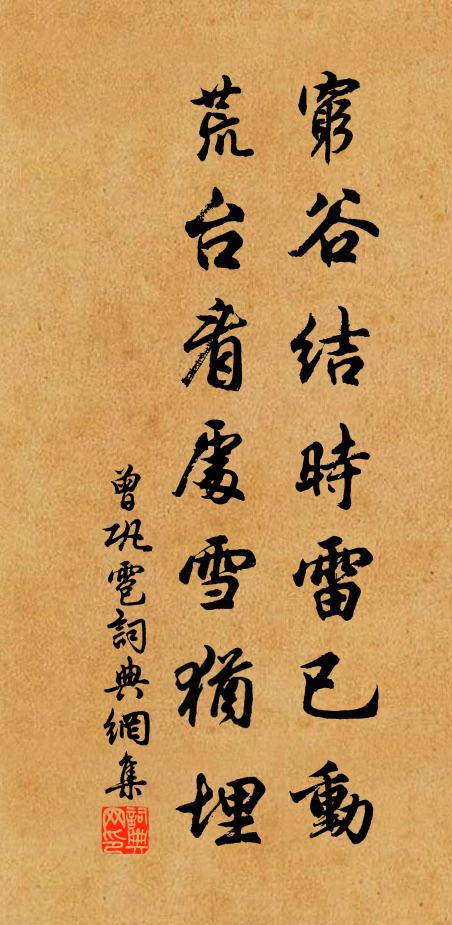 窮谷結時雷已動
荒台看處雪猶埋
曾巩雹詞典網集
詞典网印